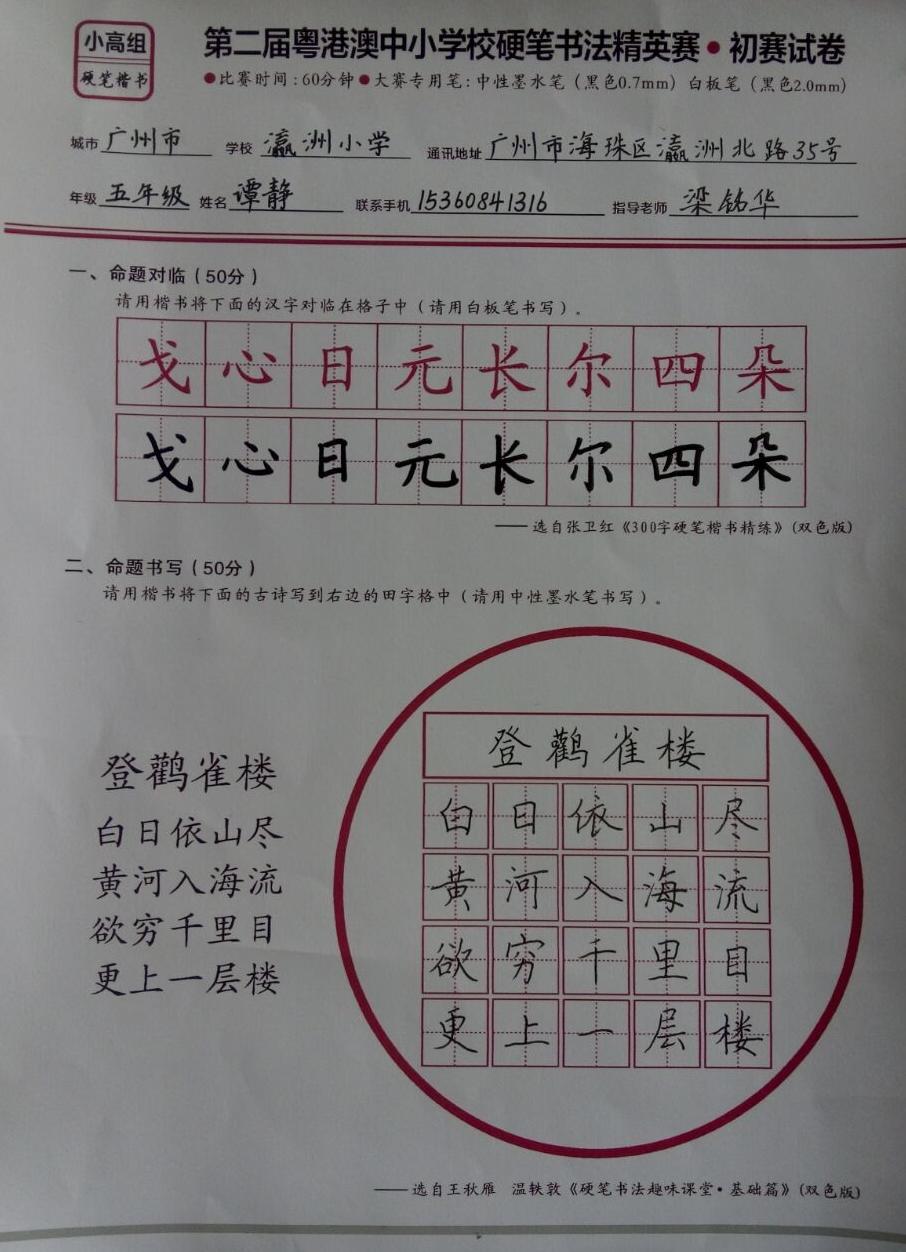 小高组
硬笔楷书
第二届粤港澳中小学校硬笔书法精英赛·初赛试卷
●比赛时间:60分钟●大赛专用笔:中性墨水笔(黑色0.7mm) 白板笔(黑色2.0mm)
城市 广州市 学校 瀛洲小学 通讯地址 广州市海珠区瀛洲北路35号
年级 五年级 姓名 谭静 联系手机 15360841316 指导老师 梁铭华
一、命题对临(50分)
请用楷书将下面的汉字对临在格子中(请用白板笔书写)。
戈心日元长尔四朵
戈心日元长尔四朵
——选自张卫红《300字硬笔楷书精练》(双色版)
二、命题书写(50分)
请用楷书将下面的古诗写到右边的田字格中(请用中性墨水笔书写)。
登鹳雀楼
白日依山尽
黄河入海流
欲穷千里目
更上一层楼
登鹳雀楼
白日依山尽
黄河入海流
欲穷千里目
更上一层楼
——选自王秋雁 温轶敦《硬笔书法趣味课堂·基础篇》(双色版)